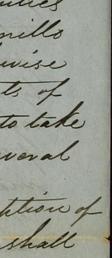 nillo
wise
ts of
to take
veral
ption of
shall